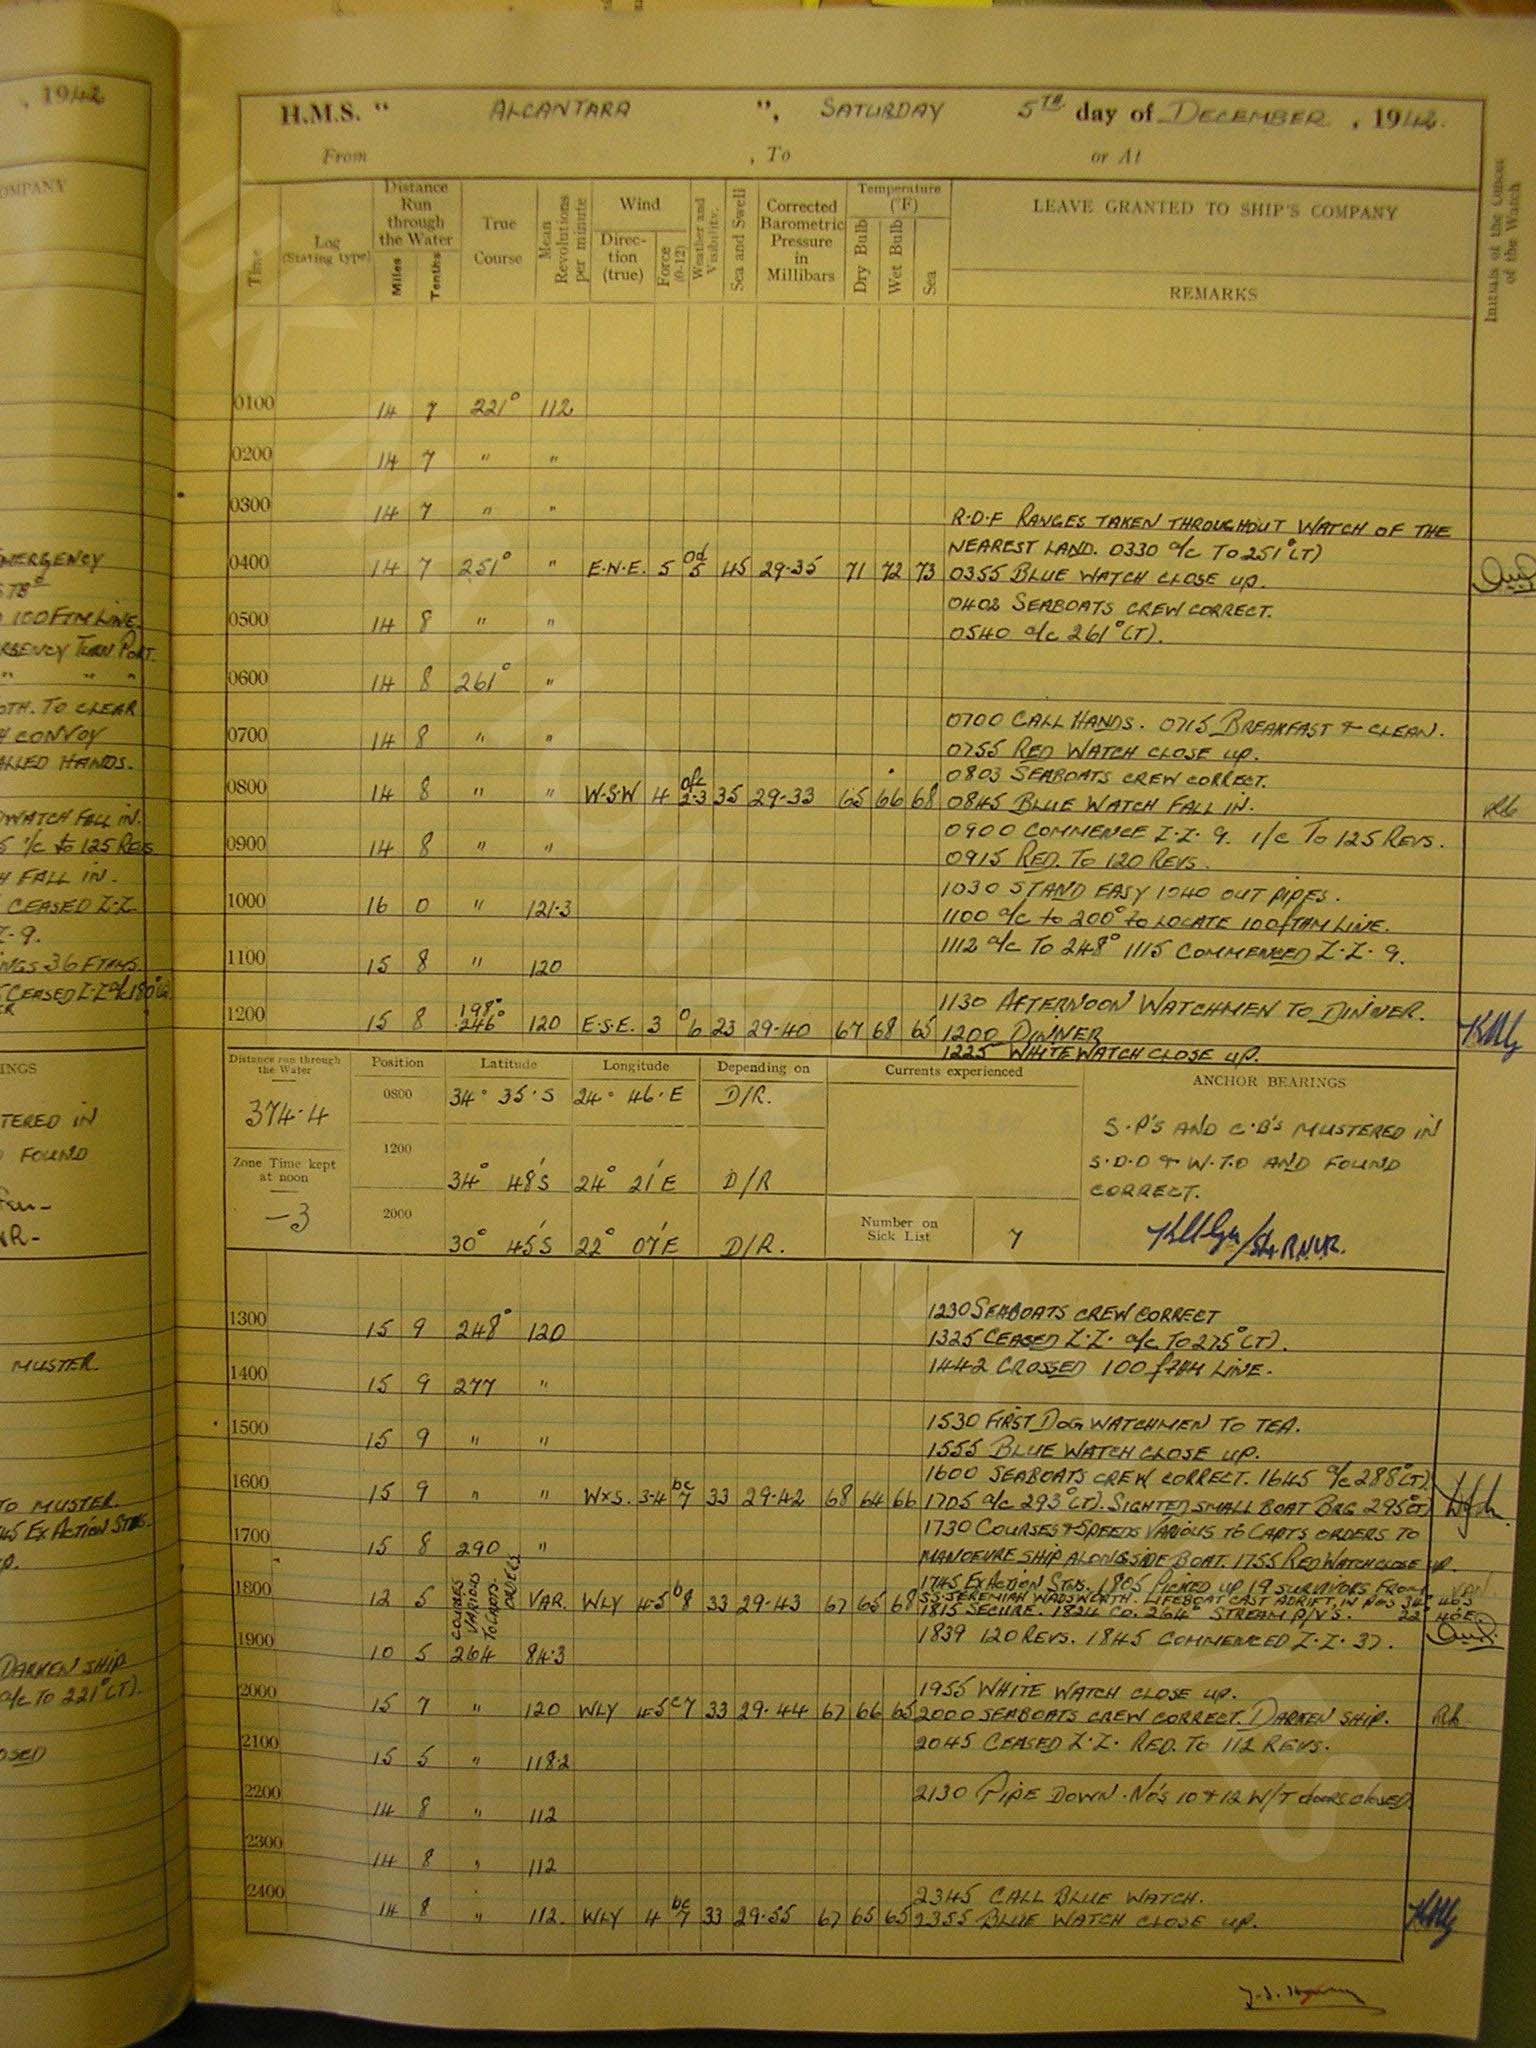 , 1942
COMPANY
EMERGENCY
100 FTM LINE.
EMERGENCY TURN PORT.
" " "
TO CLEAR
CONVOY
CALLED HANDS.
WATCH FALL IN.
TO 125 REVS
FALL IN.
CEASED Z.Z.
Z.9.
36 FTMS.
CEASED Z.Z a/c 180°
INGS
MUSTERED IN
FOUND
MUSTER.
TO MUSTER.
EX ACTION STNS.
DARKEN SHIP
a/c TO 221°(T).
H.M.S. " ALCANTARA ", SATURDAY 5TH day of DECEMBER, 1942.
From , To or At
Time
Log (Stating type)
Distance Run through the Water
Miles Tenths
True Course
Mean Revolutions per minute
Wind
Direction (true)
Force (0-12)
Weather and Visibility.
Sea and Swell
Corrected Barometric Pressure in Millibars
Temperature (°F)
Dry Bulb Wet Bulb Sea
LEAVE GRANTED TO SHIP'S COMPANY
REMARKS
Initials of the Officer of the Watch
0100 14 7 221° 112
0200 14 7 " "
0300 14 7 " "
R.D.F RANGES TAKEN THROUGHOUT WATCH OF THE
NEAREST LAND. 0330 a/c TO 251°(T)
0400 14 7 251° " E.N.E. 5 od 5 45 29.35 71 72 73 0355 BLUE WATCH CLOSE UP.
0402 SEABOATS CREW CORRECT.
0500 14 8 " " 0540 a/c 261°(T).
0600 14 8 261° "
0700 CALL HANDS. 0715 BREAKFAST & CLEAN.
0700 14 8 " " 0755 RED WATCH CLOSE UP.
0803 SEABOATS CREW CORRECT.
0800 14 8 " " W.S.W 4 2-3 35 29.33 65 66 68 0845 BLUE WATCH FALL IN.
0900 COMMENCE Z.Z. 9. I/C TO 125 REVS.
0900 14 8 " " 0915 RED. TO 120 REVS.
1030 STAND EASY 1040 OUT PIPES.
1000 16 0 " 121.3 1100 a/c to 200° to LOCATE 100 fTHM LINE.
1112 a/c TO 248° 1115 COMMENCED Z.Z. 9.
1100 15 8 " 120
1130 AFTERNOON WATCHMEN TO DINNER.
1200 15 8 198° 246° 120 E.S.E. 3 o 6 23 29.40 67 68 65 1200 DINNER
1225 WHITE WATCH CLOSE UP.
Distance run through the Water
374.4
Zone Time kept at noon
-3
Position Latitude Longitude Depending on Currents experienced ANCHOR BEARINGS
0800 34° 35'S 24° 46'E D/R.
1200 34° 48'S 24° 21'E D/R
2000 30° 45'S 22° 07'E D/R.
Number on Sick List 7
S.P'S AND C.B'S MUSTERED IN
S.D.O & W.T.O AND FOUND
CORRECT.
R.N.V.R.
1230 SEABOATS CREW CORRECT
1300 15 9 248° 120 1325 CEASED Z.Z. a/c TO 275°(T).
1442 CROSSED 100 fTHM LINE.
1400 15 9 277 "
1530 FIRST DOG WATCHMEN TO TEA.
1500 15 9 " " 1555 BLUE WATCH CLOSE UP.
1600 SEABOATS CREW CORRECT. 1645 a/c 288°(T).
1600 15 9 " " WxS. 3-4 bc 7 33 29.42 68 64 66 1705 a/c 293°(T). SIGHTED SMALL BOAT BRG 295°(T)
1730 COURSES & SPEEDS VARIOUS TO CAPTS ORDERS TO
1700 15 8 290 " MANOEVRE SHIP ALONGSIDE BOAT. 1755 RED WATCH CLOSE UP.
1745 EX ACTION STNS. 1805 PICKED UP 19 SURVIVORS FROM
1800 12 5 COURSES VARIOUS TO CAPTS. ORDERS. VAR. WLY 4-5 b 8 33 29.43 67 65 68 SS JEREMIAH WADSWORTH. LIFEBOAT CAST ADRIFT, IN POS 34° 46'S
1815 SECURE. 1824 CO. 264° STREAM P/V'S. 22° 40'E.
1839 120 REVS. 1845 COMMENCED Z.Z. 37.
1900 10 5 264 84.3
1955 WHITE WATCH CLOSE UP.
2000 15 7 " 120 WLY 4-5 c 7 33 29.44 67 66 65 2000 SEABOATS CREW CORRECT. DARKEN SHIP.
2045 CEASED Z.Z. RED. TO 112 REVS.
2100 15 5 " 118.2
2130 PIPE DOWN. No's 10 & 12 W/T doors closed.
2200 14 8 " 112
2300 14 8 " 112
2345 CALL BLUE WATCH.
2400 14 8 " 112. WLY 4 bc 7 33 29.55 67 65 65 2355 BLUE WATCH CLOSE UP.